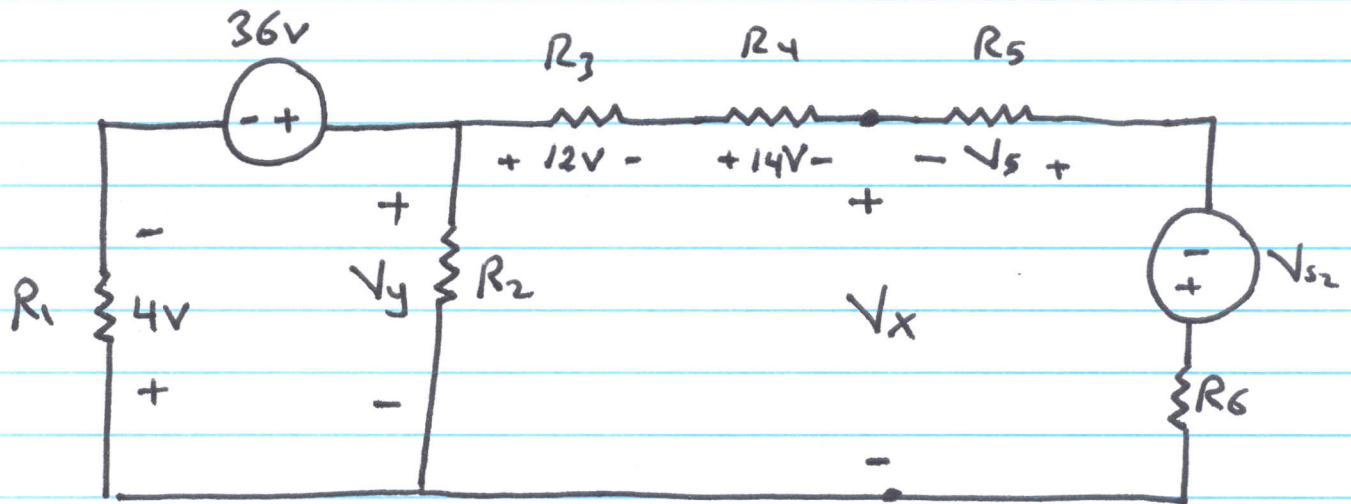 36v
R3 R4 R5
- +
+ 12V - + 14V - - V5 +
- + +
R1 4V Vy R2 Vx - + Vs2
+ - R6
-